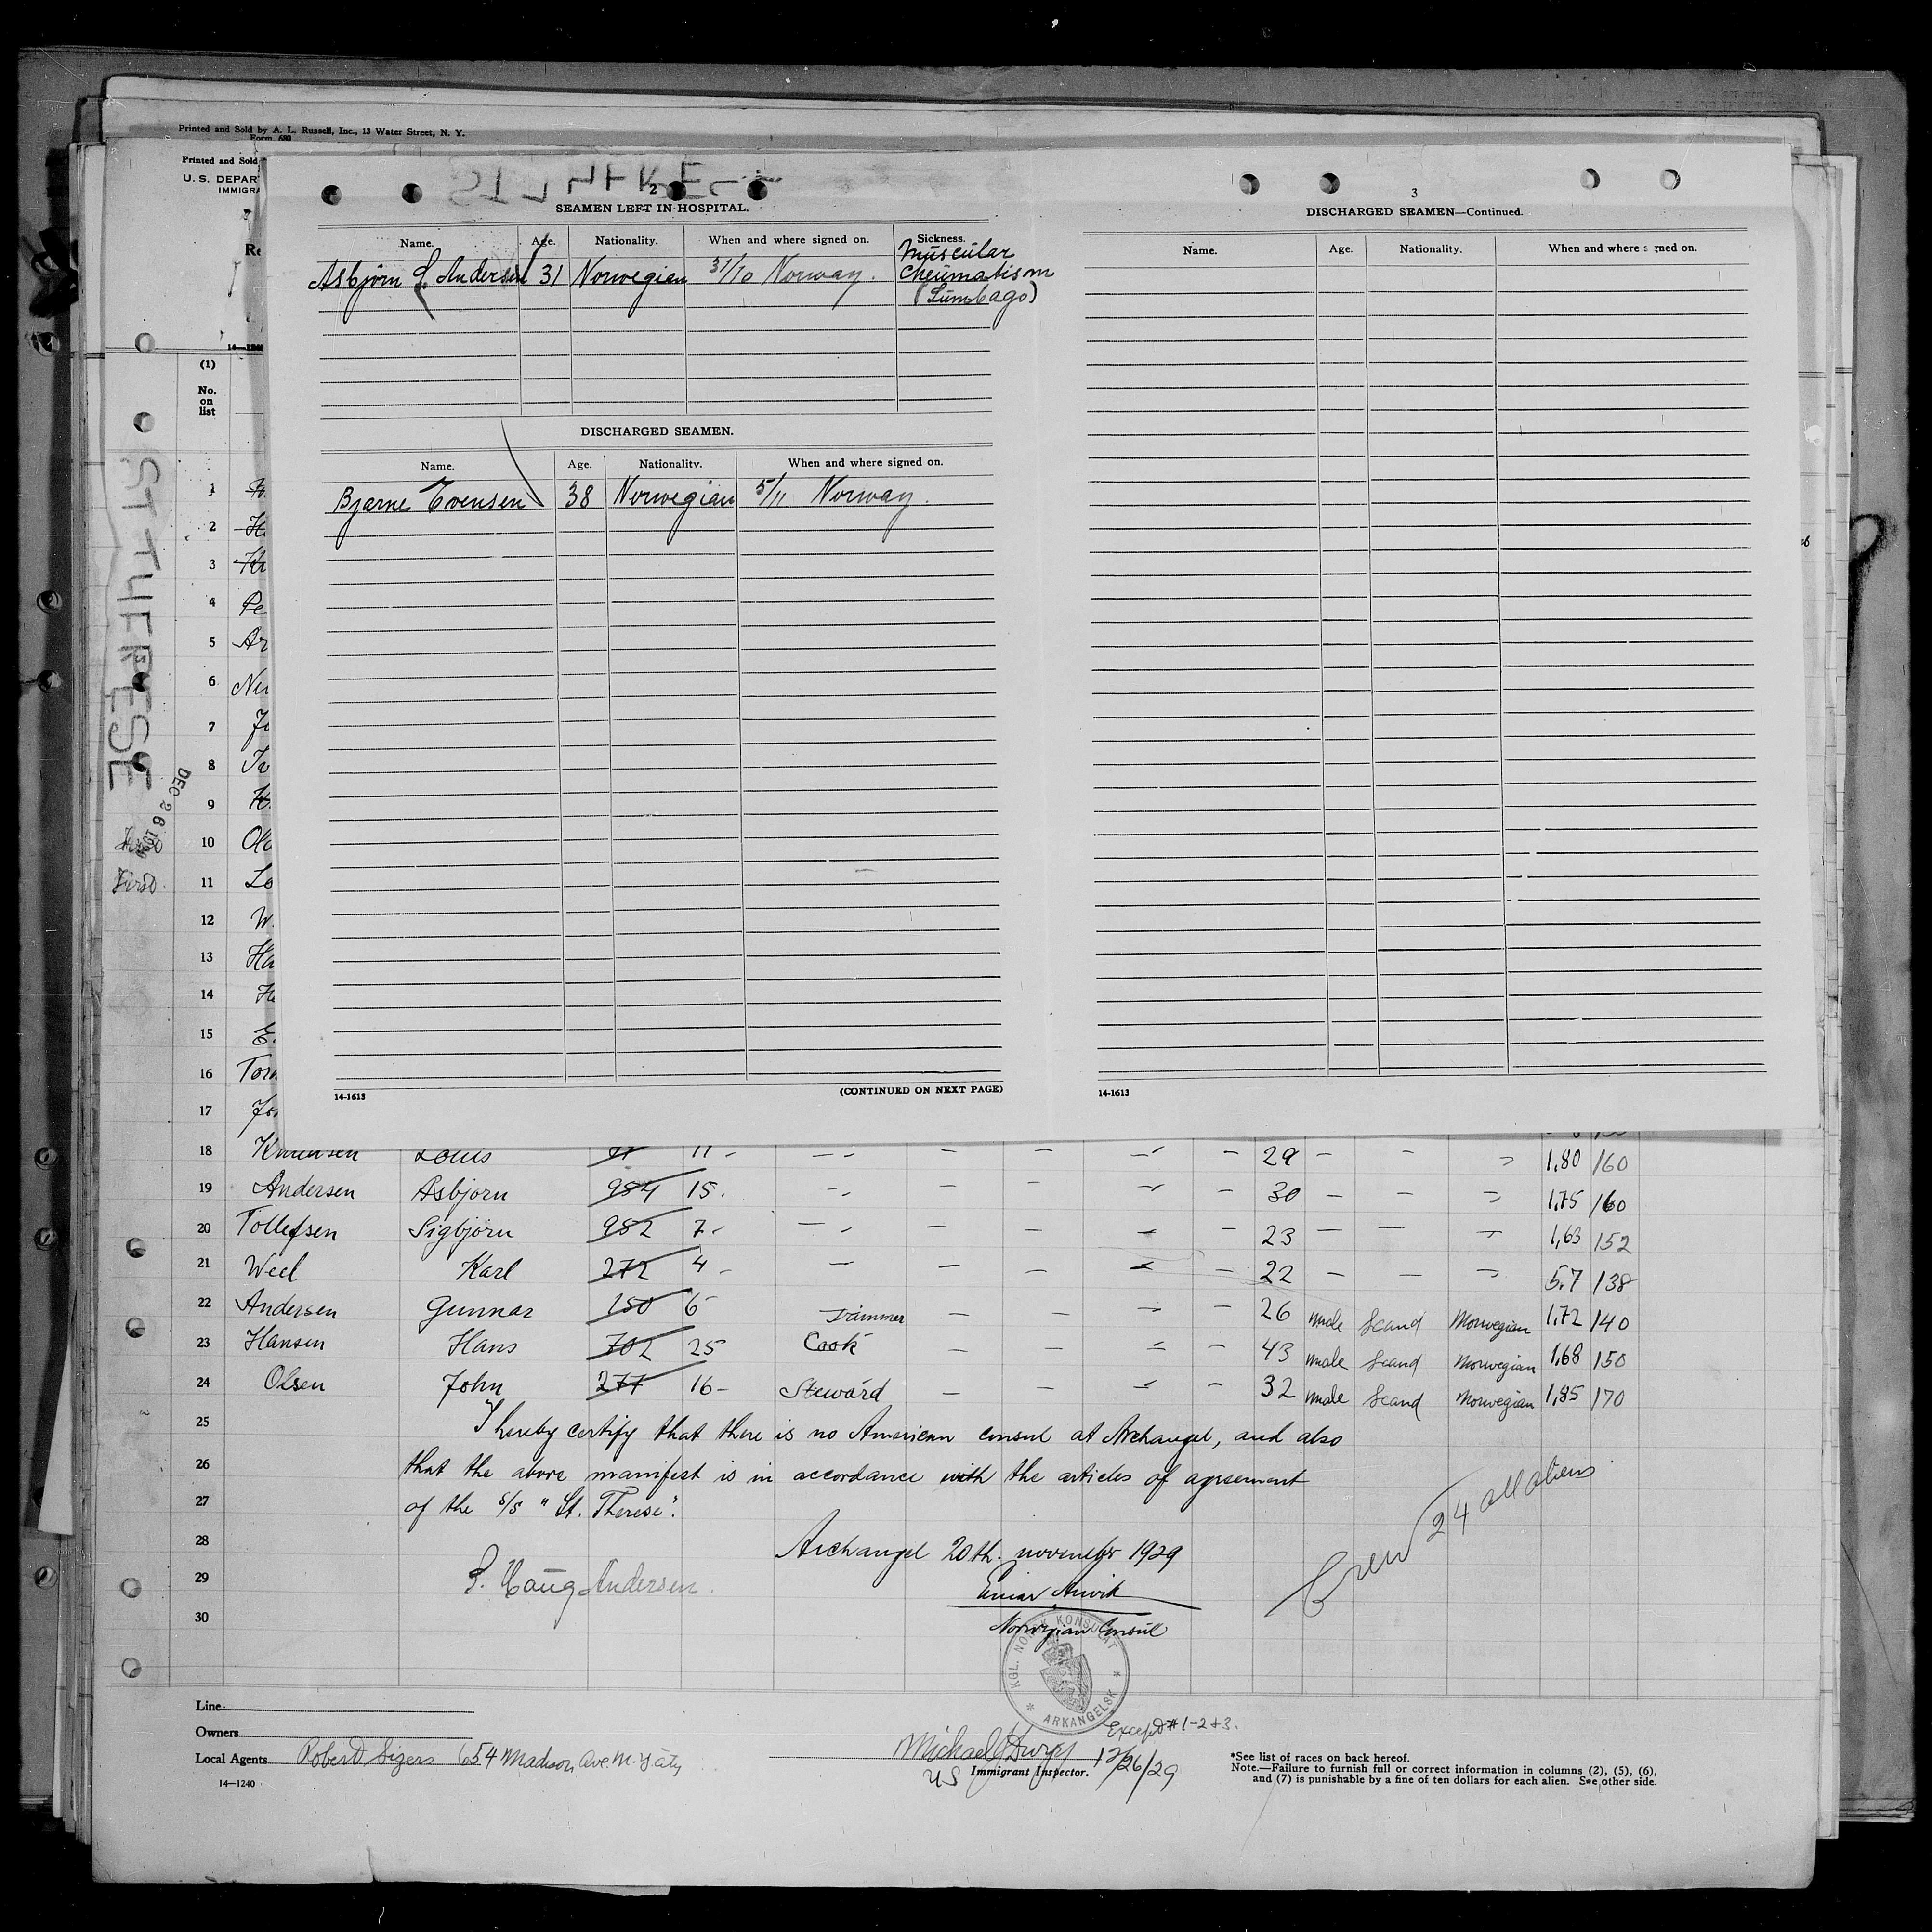 Printed and Sold by A. L. Russell, Inc., 13 Water Street, N. Y.
Form 680
Printed and Sold
U. S. DEPAR
IMMIGRA
2
SEAMEN LEFT IN HOSPITAL.
Name. Age. Nationality. When and where signed on. Sickness.
Asbjörn L. Andersen 31 Norwegian 31/10 Norway. Muscular
Rheumatism
(Lumbago)
DISCHARGED SEAMEN.
Name. Age. Nationality. When and where signed on.
Bjarne Evensen 38 Norwegian 5/11 Norway.
(CONTINUED ON NEXT PAGE)
14-1613
3
DISCHARGED SEAMEN—Continued.
Name. Age. Nationality. When and where signed on.
14-1613
(1)
No.
on
list
ST THERESE
DEC 26 1929
1
2
3
4 Pe
5 Ar
6
7
8
9
10
First
11 Lo
12 W.
13 Ha
14
15
16
17
18 Louis 11 - 29 - - 1,80 160
19 Andersen Asbjorn 984 15. 30 - - 1,75 160
20 Tollefsen Sigbjorn 982 7- 23 - - 1,63 152
21 Weel Karl 272 4 - 22 - - 5.7 138
22 Andersen Gunnar 150 6 26 male Scand Norwegian 1,72 140
23 Hansen Hans 702 25 Cook 43 male Scand Norwegian 1,68 150
24 Olsen John 277 16- Steward 32 male Scand Norwegian 1,85 170
25 I hereby certify that there is no American consul at Archangel, and also
26 that the above manifest is in accordance with the articles of agreement
27 of the s/s "St. Therese".
28 Archangel 20th. november 1929
29 Haug Andersen.
30 Norwegian Consul
Crew 24 all aliens
KGL. NORSK KONSULAT
* ARKANGELSK *
Line
Owners
Local Agents Robert Sizers 654 Madison Ave. N. Y City
14—1240
Except # 1-2+3.
Michael
US Immigrant Inspector. 12/26/29
*See list of races on back hereof.
Note.—Failure to furnish full or correct information in columns (2), (5), (6),
and (7) is punishable by a fine of ten dollars for each alien. See other side.